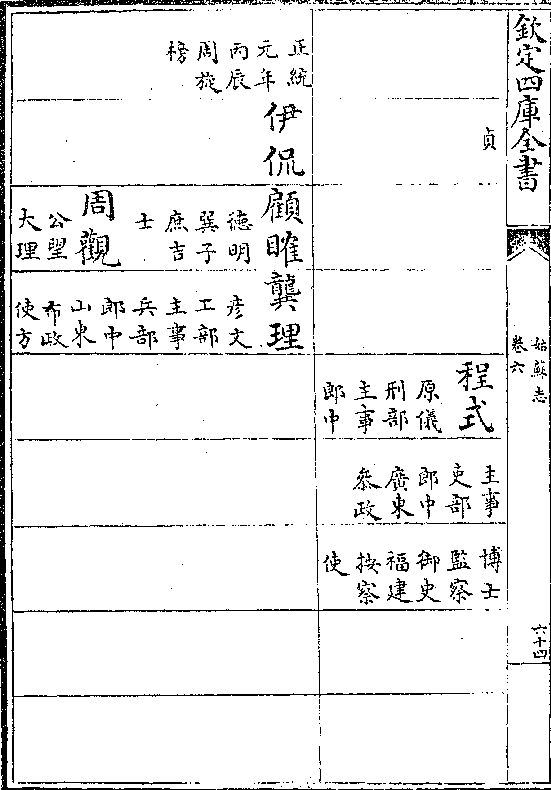 欽定四庫全書
姑蘇志
卷六
六十四
貞
程式
原儀
刑部
主事
郎中
主事
吏部
郎中
廣東
叅政
博士
監察
御史
福建
按察
使
正統
元年
丙辰
周旋
榜
伊侃
顧睢
德明
巽子
庶吉
士
周觀
公望
大理
龔理
彦文
工部
主事
兵部
郎中
山東
布政
使方